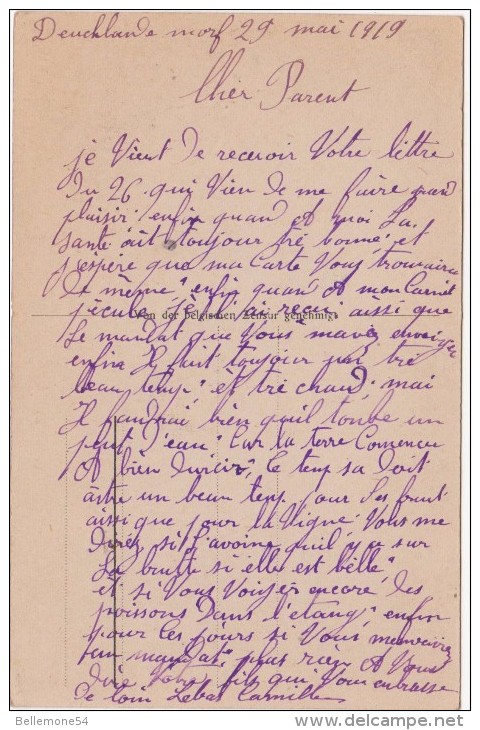 Deuchlande morf 29 mai 1919
Chèr Parent
je Vient de recevoir Votre lettre
du 26 qui Vien de me faire grand
plaisir enfin quand A moi La
santé ait toujour tré bonne et
j'espère que ma Carte Vous trouvaira
De même enfin quand A mon Carnet
j'écule je l'ai recu aissi que
Von der belgischen Zensur genehmigt
Le mandat que Vous m'avez envoiyer
enfin Il fait toujour par tré
beau temp et tré chaud mai
Il faudrai bien qu'il tonbe un
peut D'eau Car la terre Comence
A bien Durcir Le temp sa Doit
aitre un beau temp pour Les fruit
aissi que pour la Vigne Vous me
Direz si L'avoine qu'il y a sur
La butte si elle est belle
et si Vous Voiyer encore des
poissons Dans l'étang enfin
pour Ces jours si Vous
un mandat plus rien A Vous
dire Votre fils qui Vous enbrasse
De loin Lebas Camille
Bellemone54